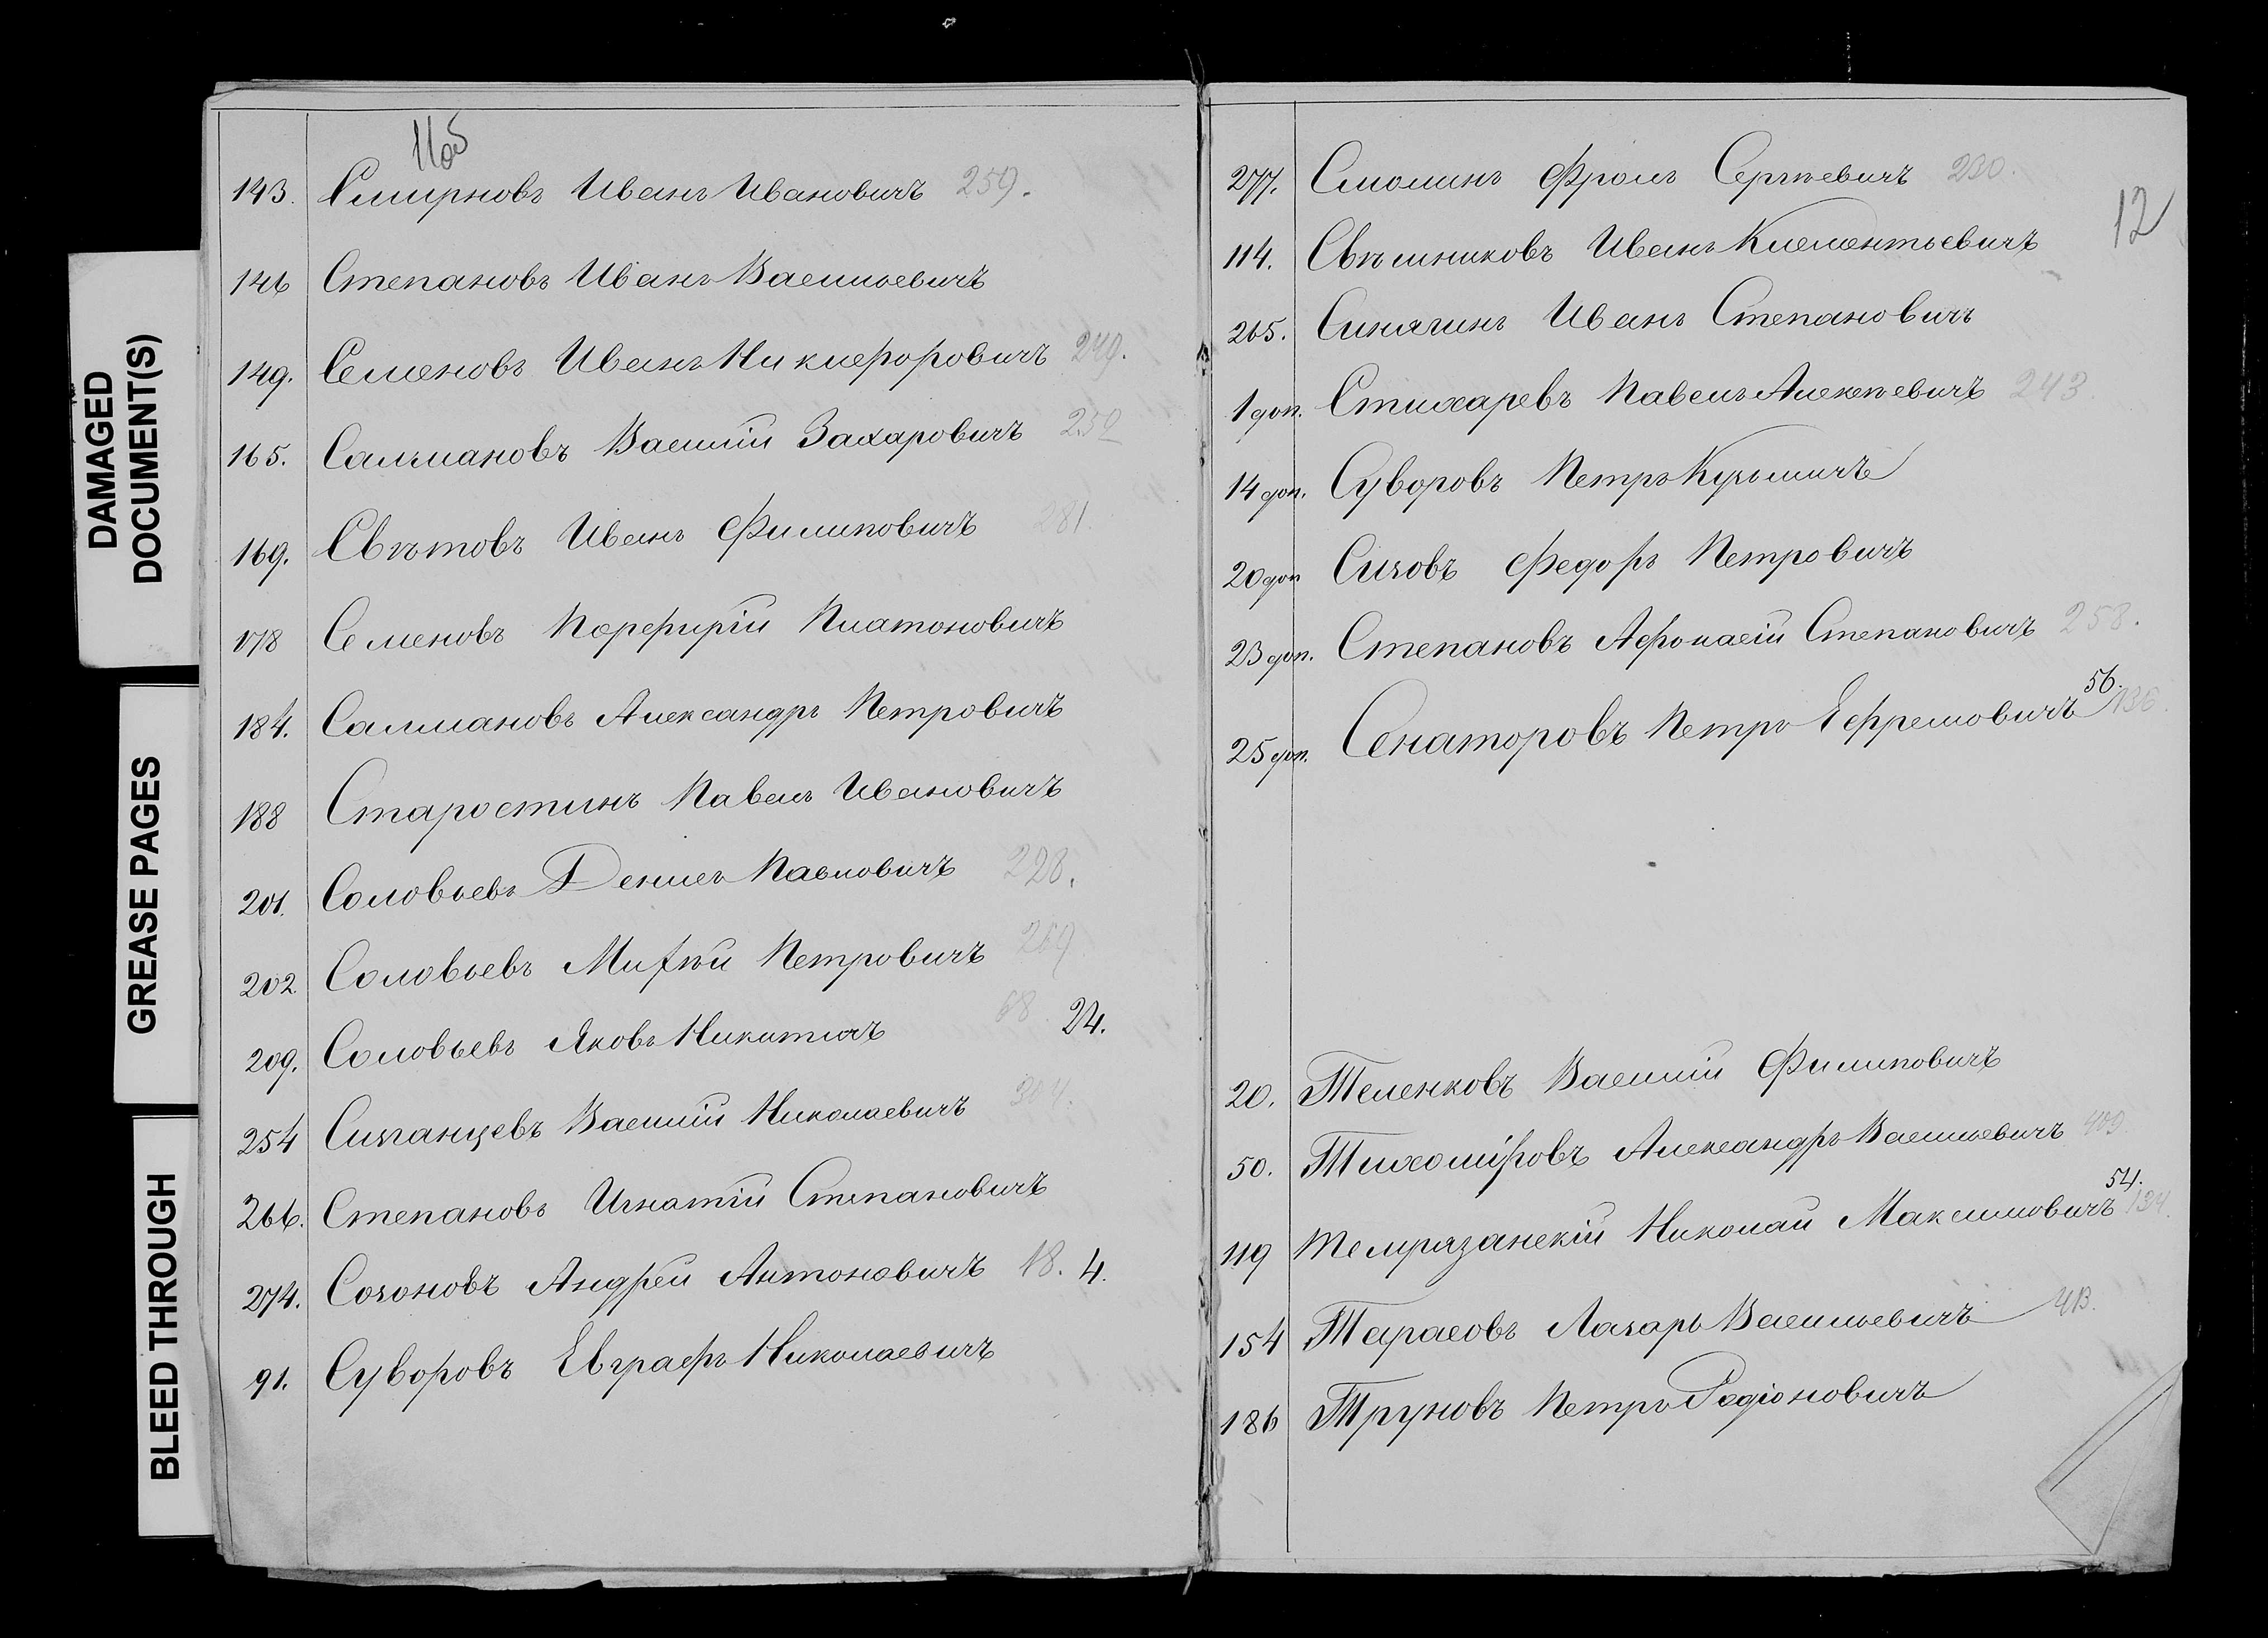 DAMAGED
DOCUMENT(S)
GREASE PAGES
BLEED THROUGH
11об
143. Смирновъ Иванъ Ивановичъ 259.
146 Степановъ Иванъ Васильевичъ
149. Семеновъ Иванъ Никифоровичъ 249.
165. Салмановъ Василій Захаровичъ 259
169. Свѣтовъ Иванъ Филиповичъ 281.
178 Семеновъ Порфирій Платоновичъ
184. Салмановъ Александръ Петровичъ
188 Старостинъ Павелъ Ивановичъ
201. Соловьевъ Денисъ Павловичъ 228.
202. Соловьевъ Миѳѣй Петровичъ 269
209. Соловьевъ Яковъ Никитичъ 68. 24.
254 Сизганцевъ Василій Николаевичъ 304.
266. Степановъ Игнатій Степановичъ
274. Созоновъ Андрей Антоновичъ 18. 4.
91. Суворовъ Евграфъ Николаевичъ
12
277. Смолинъ Фролъ Сергѣевичъ 230.
114. Свѣшниковъ Иванъ Клементьевичъ
265. Синягинъ Иванъ Степановичъ
1 доп. Стихаревъ Павелъ Алексѣевичъ 243.
14 доп. Суворовъ Петръ Кузьмичъ
20 доп Сизовъ Федоръ Петровичъ
23 доп. Степановъ Афонасій Степановичъ 258.
25 доп. Сенаторовъ Петръ Ефремовичъ 56. 136.
20. Теленковъ Василій Филиповичъ
50. Тихоміровъ Александръ Васильевичъ 409.
119 Темрязанскій Николай Максимовичъ 54. 134.
154 Тарасовъ Лазарь Васильевичъ 413.
186 Труновъ Петръ Радіоновичъ